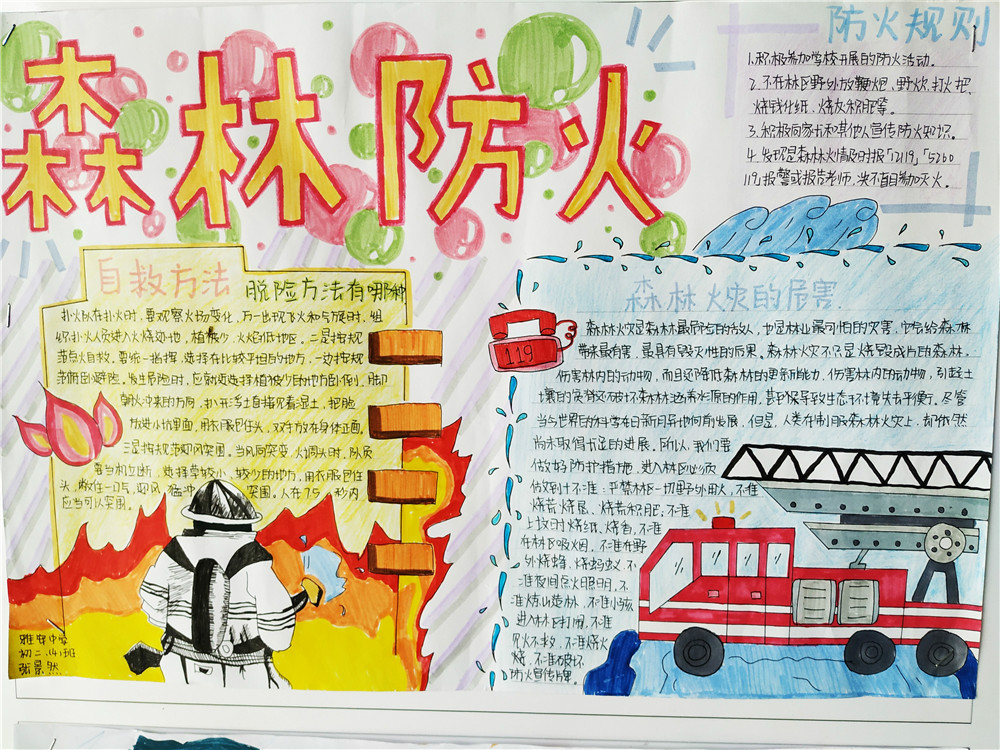 森林防火
防火规则
1.积极参加学校开展的防火活动.
2.不在林区野外放鞭炮、野炊、打火把、
烧钱化纸、烧灰积肥等。
3.积极向家长和其他人宣传防火知识。
4.发现是森林火情及时报「12119」「5260
119」报警或报告老师,决不盲目参加灭火。
自救方法
脱险方法有哪种
扑火队在扑火时,要观察火场变化,万一出现飞火和气旋时,组
织扑火人员进入火烧迹地,植被少、火焰低地区。二是按规
范点火自救。要统一指挥,选择在比较平坦的地方,一边按规
范俯卧避险。发生危险时,应就近选择植被少的地方卧倒,脚
朝火冲来的方向,扒开浮土直指见着湿土,把脸
放进小坑里面,用衣服包住头,双手放在身体正面.
三是按规范迎风突围。当风向突变,火掉头时,队员
要当机立断,选择草较小、较少的地方,用衣服包住
头,憋住一口气,迎风猛冲突围。人在7.5秒内
应当可以突围。
雅安中学
初二.(4)班
张景然
119
森林火灾的危害.
森林火灾是森林最危险的敌人,也是林业最可怕的灾害,它会给森林
带来最有害,最具有毁灭性的后果。森林火灾不只是烧毁成片的森林,
伤害林内的动物,而且还降低森林的更新能力,伤害林内的动物,引起土
壤的贫瘠区破坏森林涵养水源的作用,甚至会导致生态环境失去平衡了。尽管
当今世界的科学在日新月异地向前发展,但是,人类在制服森林火灾上,却依然
尚未取得长足的进展。所以,我们要
做好防护措施,进入林区必须
做到十不准:严禁林区一切野外用火,不准
烧荒烧尾、烧荒积肥;不准
上坟时烧纸、烧香,不准
在林区吸烟,不准在野
外烧蜂、烧蚂蚁、不
准夜间点火照明,不
准炼山造林,不准小孩
进林区打闹,不准
见火不救,不准烧火
烧,不准破坏
防火宣传牌。